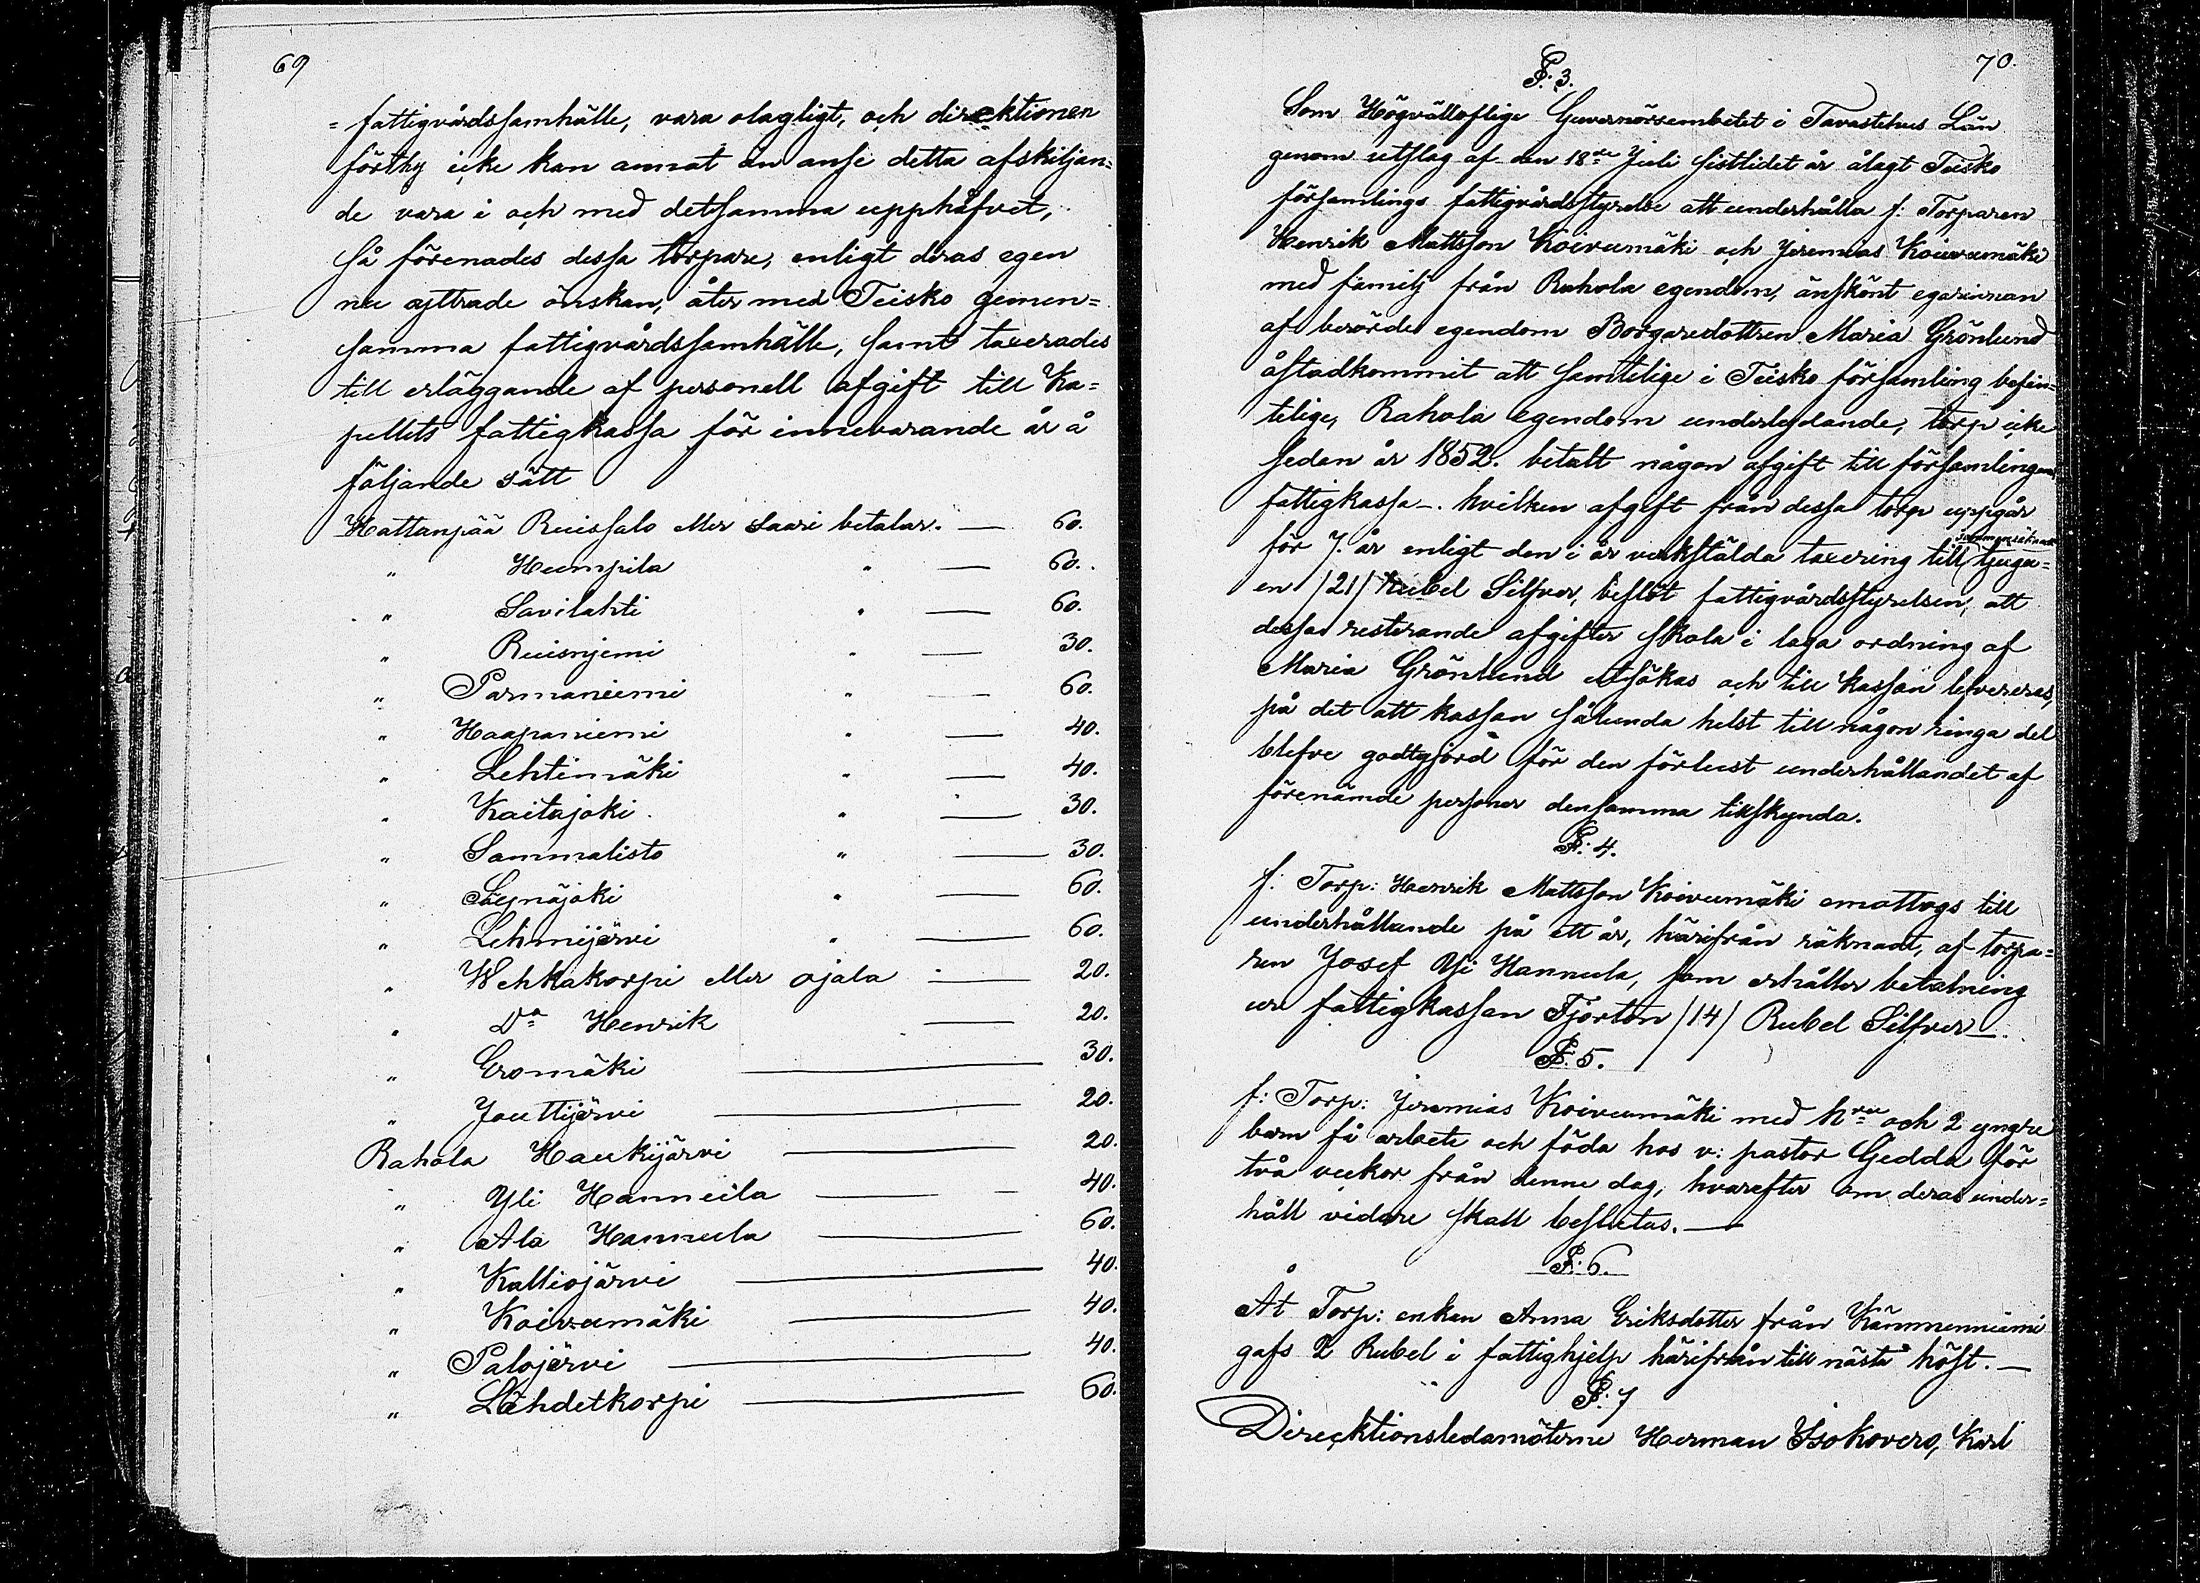 69
= fattigvårdssamhälle, vara olagligt, och direktionen
förthy icke kan annat än anse detta afskiljan=
de vara i och med detsamma upphäfvet,
så förenades dessa torpare, enligt deras egen
nu yttrade önskan, åter med Teisko gemen=
samma fattigvårdssamhälle, samt taxerades
till erläggande af personell afgift till Ka=
pellets fattigkassa för innevarande år å
följande sätt
Hattanpää Ruissalo eller Saari betalar. — 60.
„ Humpila „ — 60.
„ Savilahti „ — 60.
„ Ruisnjemi „ — 30.
„ Parmaniemi „ — 60.
„ Haapaniemi „ — 40.
„ Lehtimäki „ — 40.
„ Kaitajoki „ — 30.
„ Sammalisto „ — 30.
„ Säynäjoki „ — 60.
„ Lehmijärvi „ — 60.
„ Wehkakorpi eller ojala — 20.
„ Do Henrik — 20.
„ Eromäki — 30.
„ Jouttijärvi — 20.
Rahola Haukijärvi — 20.
„ Yli Hannula — 40.
„ Ala Hannula — 60.
„ Kalliojärvi — 40.
„ Koivumäki — 40.
„ Palojärvi — 40.
„ Lähdetkorpi — 60.
70.
§: 3.
Som Högvälloflige Guvernörsembetet i Tavastehus Län
genom utslag af den 18de Juli sistlidet år ålagt Teisko
församlings fattigvårdsstyrelse att underhålla f: Torparen
Henrik Mattsson Koivumäki och Jeremias Koivumäki
med familj från Rahola egendom, änskönt egarinnan
af berörde egendom Borgaredottren Maria Grönlund
åstadkommit att samtelige i Teisko församling befin=
telige, Rahola egendom underlydande, torp icke
sedan år 1852. betalt någon afgift till församlingens
fattigkassa —. hvilken afgift från dessa torp uppgår
för 7. år enligt den i år verkstälda taxering till sammanräknadt tjugu=
en /21/ Rubel Silfver, beslöt fattigvårdsstyrelsen, att
dessa resterande afgifter skola i laga ordning af
Maria Grönlund utsökas och till kassan levereras,
på det att kassan sålunda helst till någon ringa del
blefve godtgjord för den förlust underhållandet af
förenämde personer densamma tillskynda.
§: 4.
f: Torp: Henrik Mattsson Koivumäki emottogs till
underhållande på ett år, härifrån räknadt, af torpa=
ren Josef Yli Hannula, som erhåller betalning
ur fattigkassan Fjorton /14/ Rubel Silfver —.
§: 5.
f: Torp: Jeremias Koivumäki med hru och 2 yngre
barn få arbete och föda hos v: pastor Gedda för
två veckor från denne dag, hvarefter om deras under=
håll vidare skall beslutas. —
§: 6.
Åt Torp: enkan Anna Eriksdotter från Kämmenniemi
gafs 2 Rubel i fattighjelp härifrån till nästa höst. —
§: 7
Direcktionsledamöterne Herman Isokovero, Karl